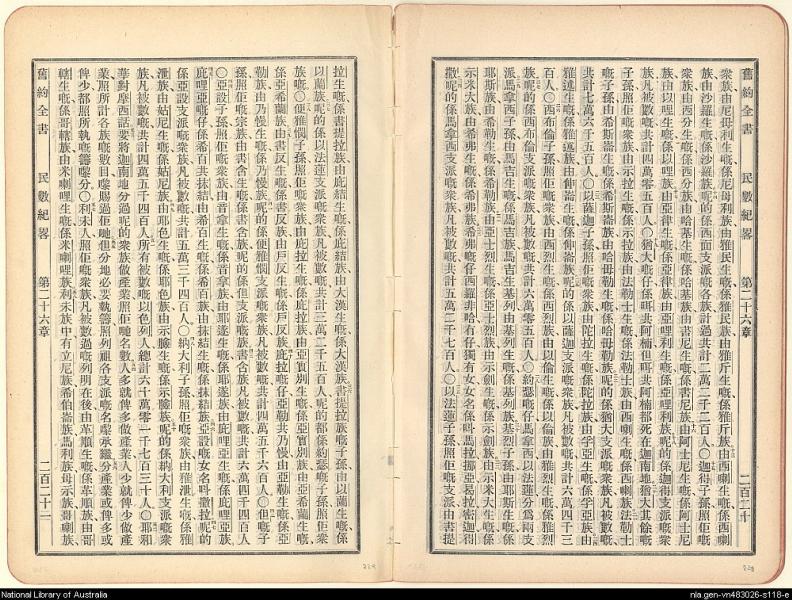 舊約全書　民數紀畧　第二十六章　二百二十
衆族由尼母利生嘅係尼母利族由雅民生嘅係雅民族由雅斤生嘅係雅斤族由西喇生嘅係西喇
族由沙羅生嘅係沙羅族呢的係西面支派嘅各族計過共計二萬二千二百人〇迦得子孫照佢嘅
衆族由西分生嘅係西分族由哈基生嘅係哈基族由書尼生嘅係書尼族由阿士尼生嘅係阿士尼
族由以哩生嘅係以哩族由亞律生嘅係亞律族由亞哩利生嘅係亞哩利族呢的係迦得支派嘅衆
族凡被數嘅共計四萬零五百人〇猶大嘅仔係咡共阿楠但咡共阿楠都死在迦南地猶大其餘嘅
子孫照佢嘅衆族由示拉生嘅係示拉族由法勒士生嘅係法勒士族由西喇生嘅係西喇族法勒士
嘅子孫由希斯崙生嘅係希斯崙族由哈母勒生嘅係哈母勒族呢的係猶大支派嘅衆族凡被數嘅
共計七萬六千五百人〇以薩迦子孫照佢嘅衆族由陀拉生嘅係陀拉族由孚亞生嘅係孚亞族由
雅述生嘅係雅述族由伸崙生嘅係伸崙族呢的係以薩迦支派嘅衆族凡被數嘅共計六萬四千三
百人〇西布倫子孫照佢嘅衆族由西烈生嘅係西烈族由以倫生嘅係以倫族由雅烈生嘅係雅烈
族呢的係西布倫支派嘅衆族凡被數嘅共計六萬零五百人〇約瑟嘅仔係馬拿西以法蓮分爲兩支
派馬拿西子孫由馬吉生嘅係馬吉族馬吉生基列由基列生嘅係基列族基列子孫由耶斯生嘅係
耶斯族由希勒生嘅係希勒族由亞士烈生嘅係亞士烈族由示劍生嘅係示劍族由示米大生嘅係
示米大族由希弗生嘅係希弗族希弗嘅仔西羅非哈冇仔獨有女女名係叫馬拉挪亞曷拉密迦得
撒呢的係馬拿西支派嘅衆族凡被數嘅共計五萬二千七百人〇以法蓮子孫照佢嘅支派由書提
拉生嘅係書提拉族由庇結生嘅係庇結族由大漢生嘅係大漢族書提拉族嘅子孫由以蘭生嘅係
以蘭族呢的係以法蓮支派嘅衆族凡被數嘅共計三萬二千五百人呢的都係約瑟嘅子孫照佢衆
族嘅〇便雅憫子孫照佢嘅衆族由庇拉生嘅係庇拉族由亞實別生嘅係亞實別族由亞希蘭生嘅
係亞希蘭族由書反生嘅係書反族由戶反生嘅係戶反族庇拉嘅仔亞勒共乃慢由亞勒生嘅係亞
勒族由乃慢生嘅係乃慢族呢的係便雅憫支派嘅衆族凡被數嘅共計四萬五千六百人〇但嘅子
孫照佢嘅宗族由書含生嘅係書含族呢的係但支派嘅族書含族凡被數嘅共計六萬四千四百人
〇亞設子孫照佢嘅衆族由音拿生嘅係音拿族由耶遂生嘅係耶遂族由庇哩亞生嘅係庇哩亞族
庇哩亞嘅仔係希百共抹結由希百生嘅係希百族由抹結生嘅係抹結族亞設嘅女名叫撒拉呢的
係亞設支派嘅衆族凡被數嘅共計五萬三千四百人〇納大利子孫照佢嘅衆族由雅泄生嘅係雅
泄族由姑尼生嘅係姑尼族由耶色生嘅係耶色族由示臉生嘅係示臉族呢的係納大利支派嘅衆
族凡被數嘅共計四萬五千四百人所有被數嘅以色列人總計六十萬零一千七百三十人〇耶和
華對摩西話要將迦南地分過呢的衆族做產業照佢哋名數人多就俾多做產業人少就俾少做產
業照所計各族嘅數目嚟賜過佢哋但分地必要執籌照列祖各支派嘅名嚟承繼分產業或俾多或
俾少都照所執嘅籌嚟分〇利未人照佢嘅衆族凡被數過嘅列明在後由革順生嘅係革順族由哥
轄生嘅係哥轄族由米喇哩生嘅係米喇哩族利未族中有立尼族希伯崙族馬利族母示族哥喇族
舊約全書　民數紀畧　第二十六章　二百二十一
National Library of Australia
nla.gen-vn483026-s118-e